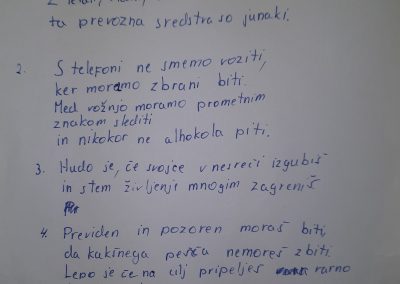 ta prevozna sredstva so junaki.
2. S telefoni ne smemo voziti,
ker moramo zbrani biti.
Med vožnjo moramo prometnim
znakom slediti
in nikokor ne alhokola piti.
3. Hudo je, če svojce v nesreči izgubiš
in s tem življenje mnogim zagreniš
4. Previden in pozoren moraš biti,
da kakšnega pešča nemoreš zbiti.
Lepo je če na cilj pripelješ varno